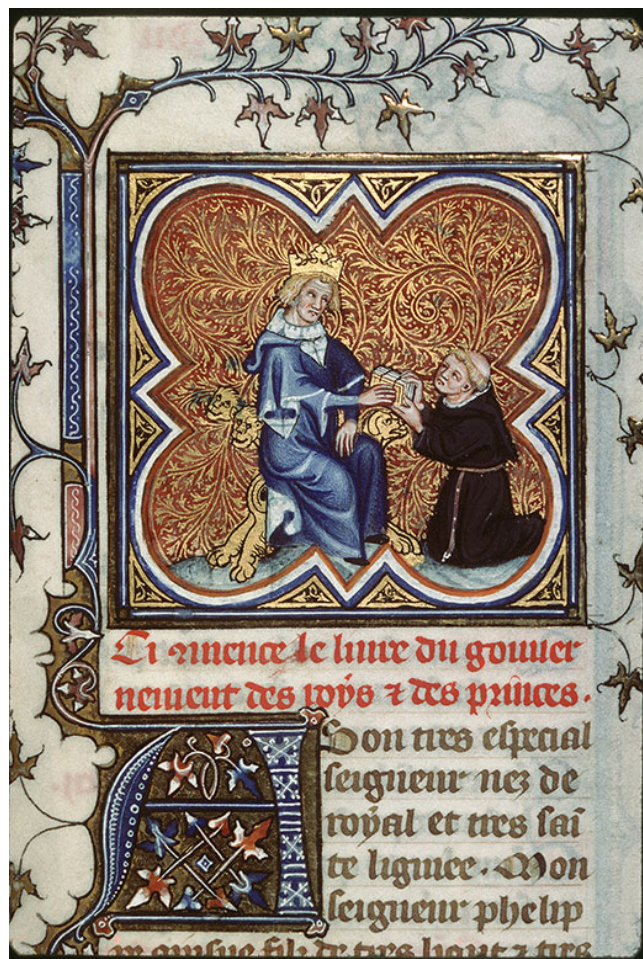 Ci 9mence le liure du gouuer
nement des roys ⁊ des princes.
A Son tres especial
seigneur nez de
royal et tres sai͂
te ligniee. Mon
seigneur phelip
filz de tres haut ⁊ tres